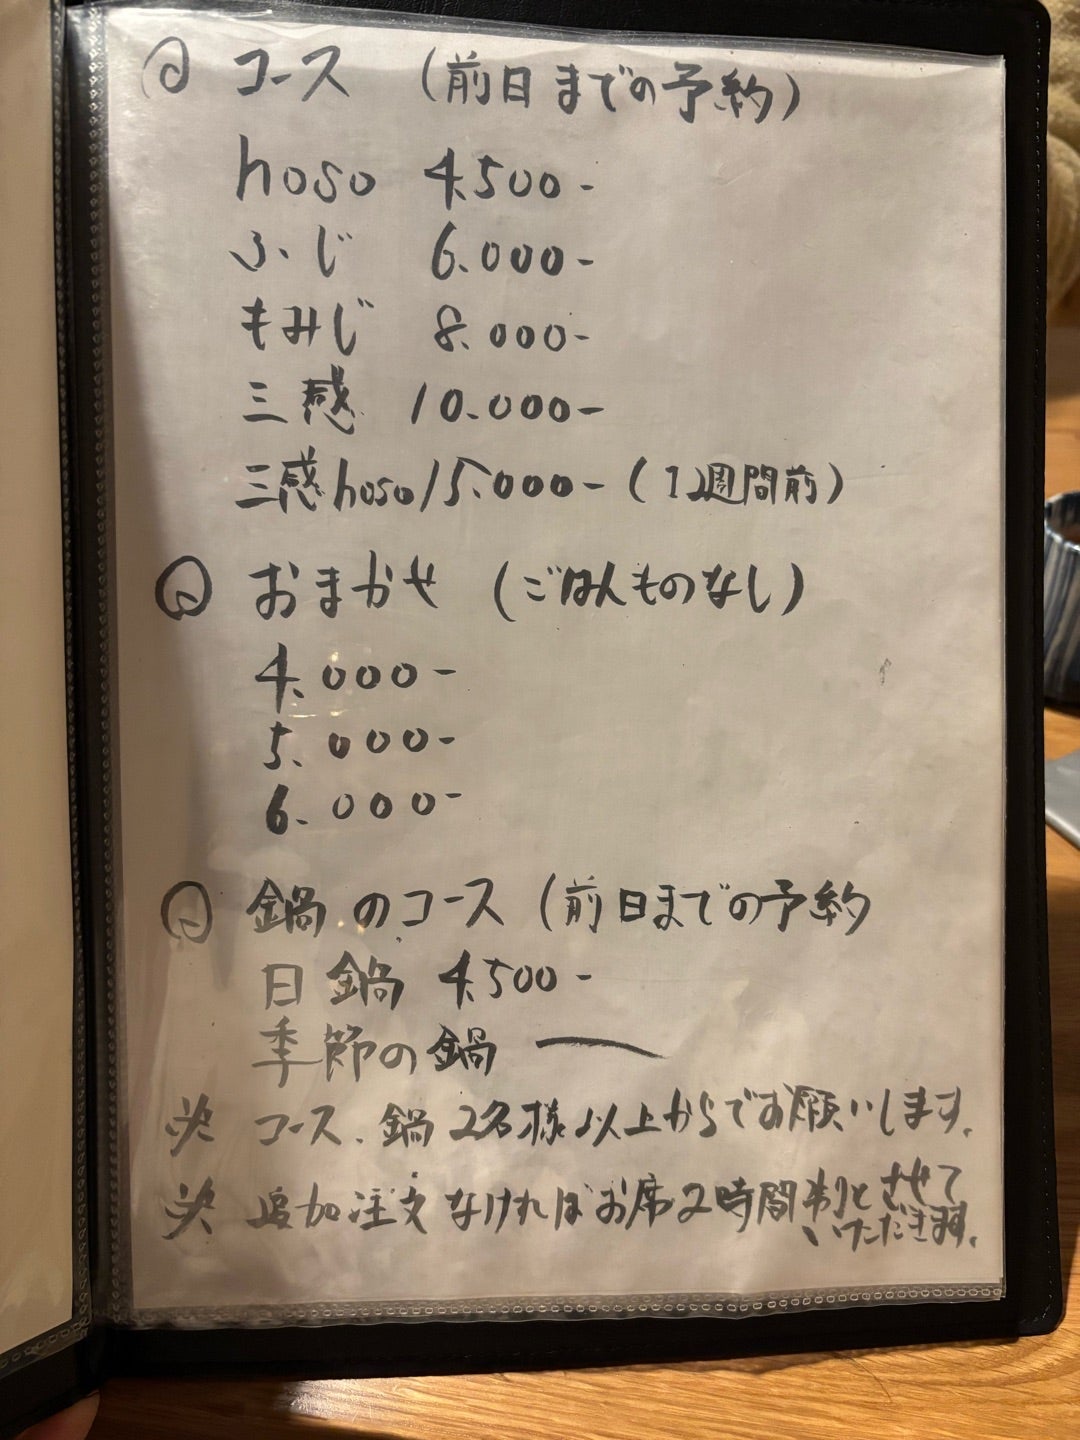 コース (前日までの予約)
hoso 4.500-
ふじ 6.000-
もみじ 8.000-
三感 10.000-
三感hoso 15.000- (1週間前)
おまかせ (ごはんものなし)
4.000-
5.000-
6.000-
鍋のコース (前日までの予約
日鍋 4.500-
季節の鍋 ー
※ コース、鍋 2名様以上からでお願いします。
※ 追加注文なければお席2時間制とさせて
いただきます。